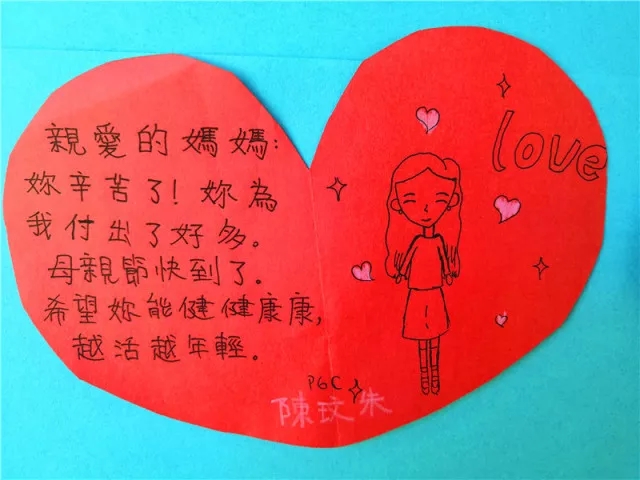 親愛的媽媽:
妳辛苦了! 妳為
我付出了好多。
母親節快到了.
希望妳能健健康康,
越活越年輕。
love
P6C
陳玟朱